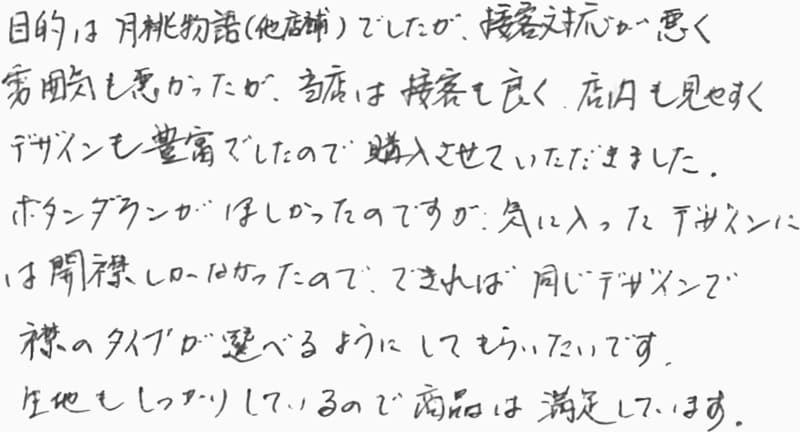 目的は月桃物語(他店舗)でしたが、接客対応が悪く
雰囲気も悪かったが、当店は接客も良く、店内も見やすく
デザインも豊富でしたので購入させていただきました。
ボタンダウンがほしかったのですが、気に入ったデザインに
は開襟しかなかったので、できれば同じデザインで
襟のタイプが選べるようにしてもらいたいです。
生地もしっかりしているので商品は満足しています。